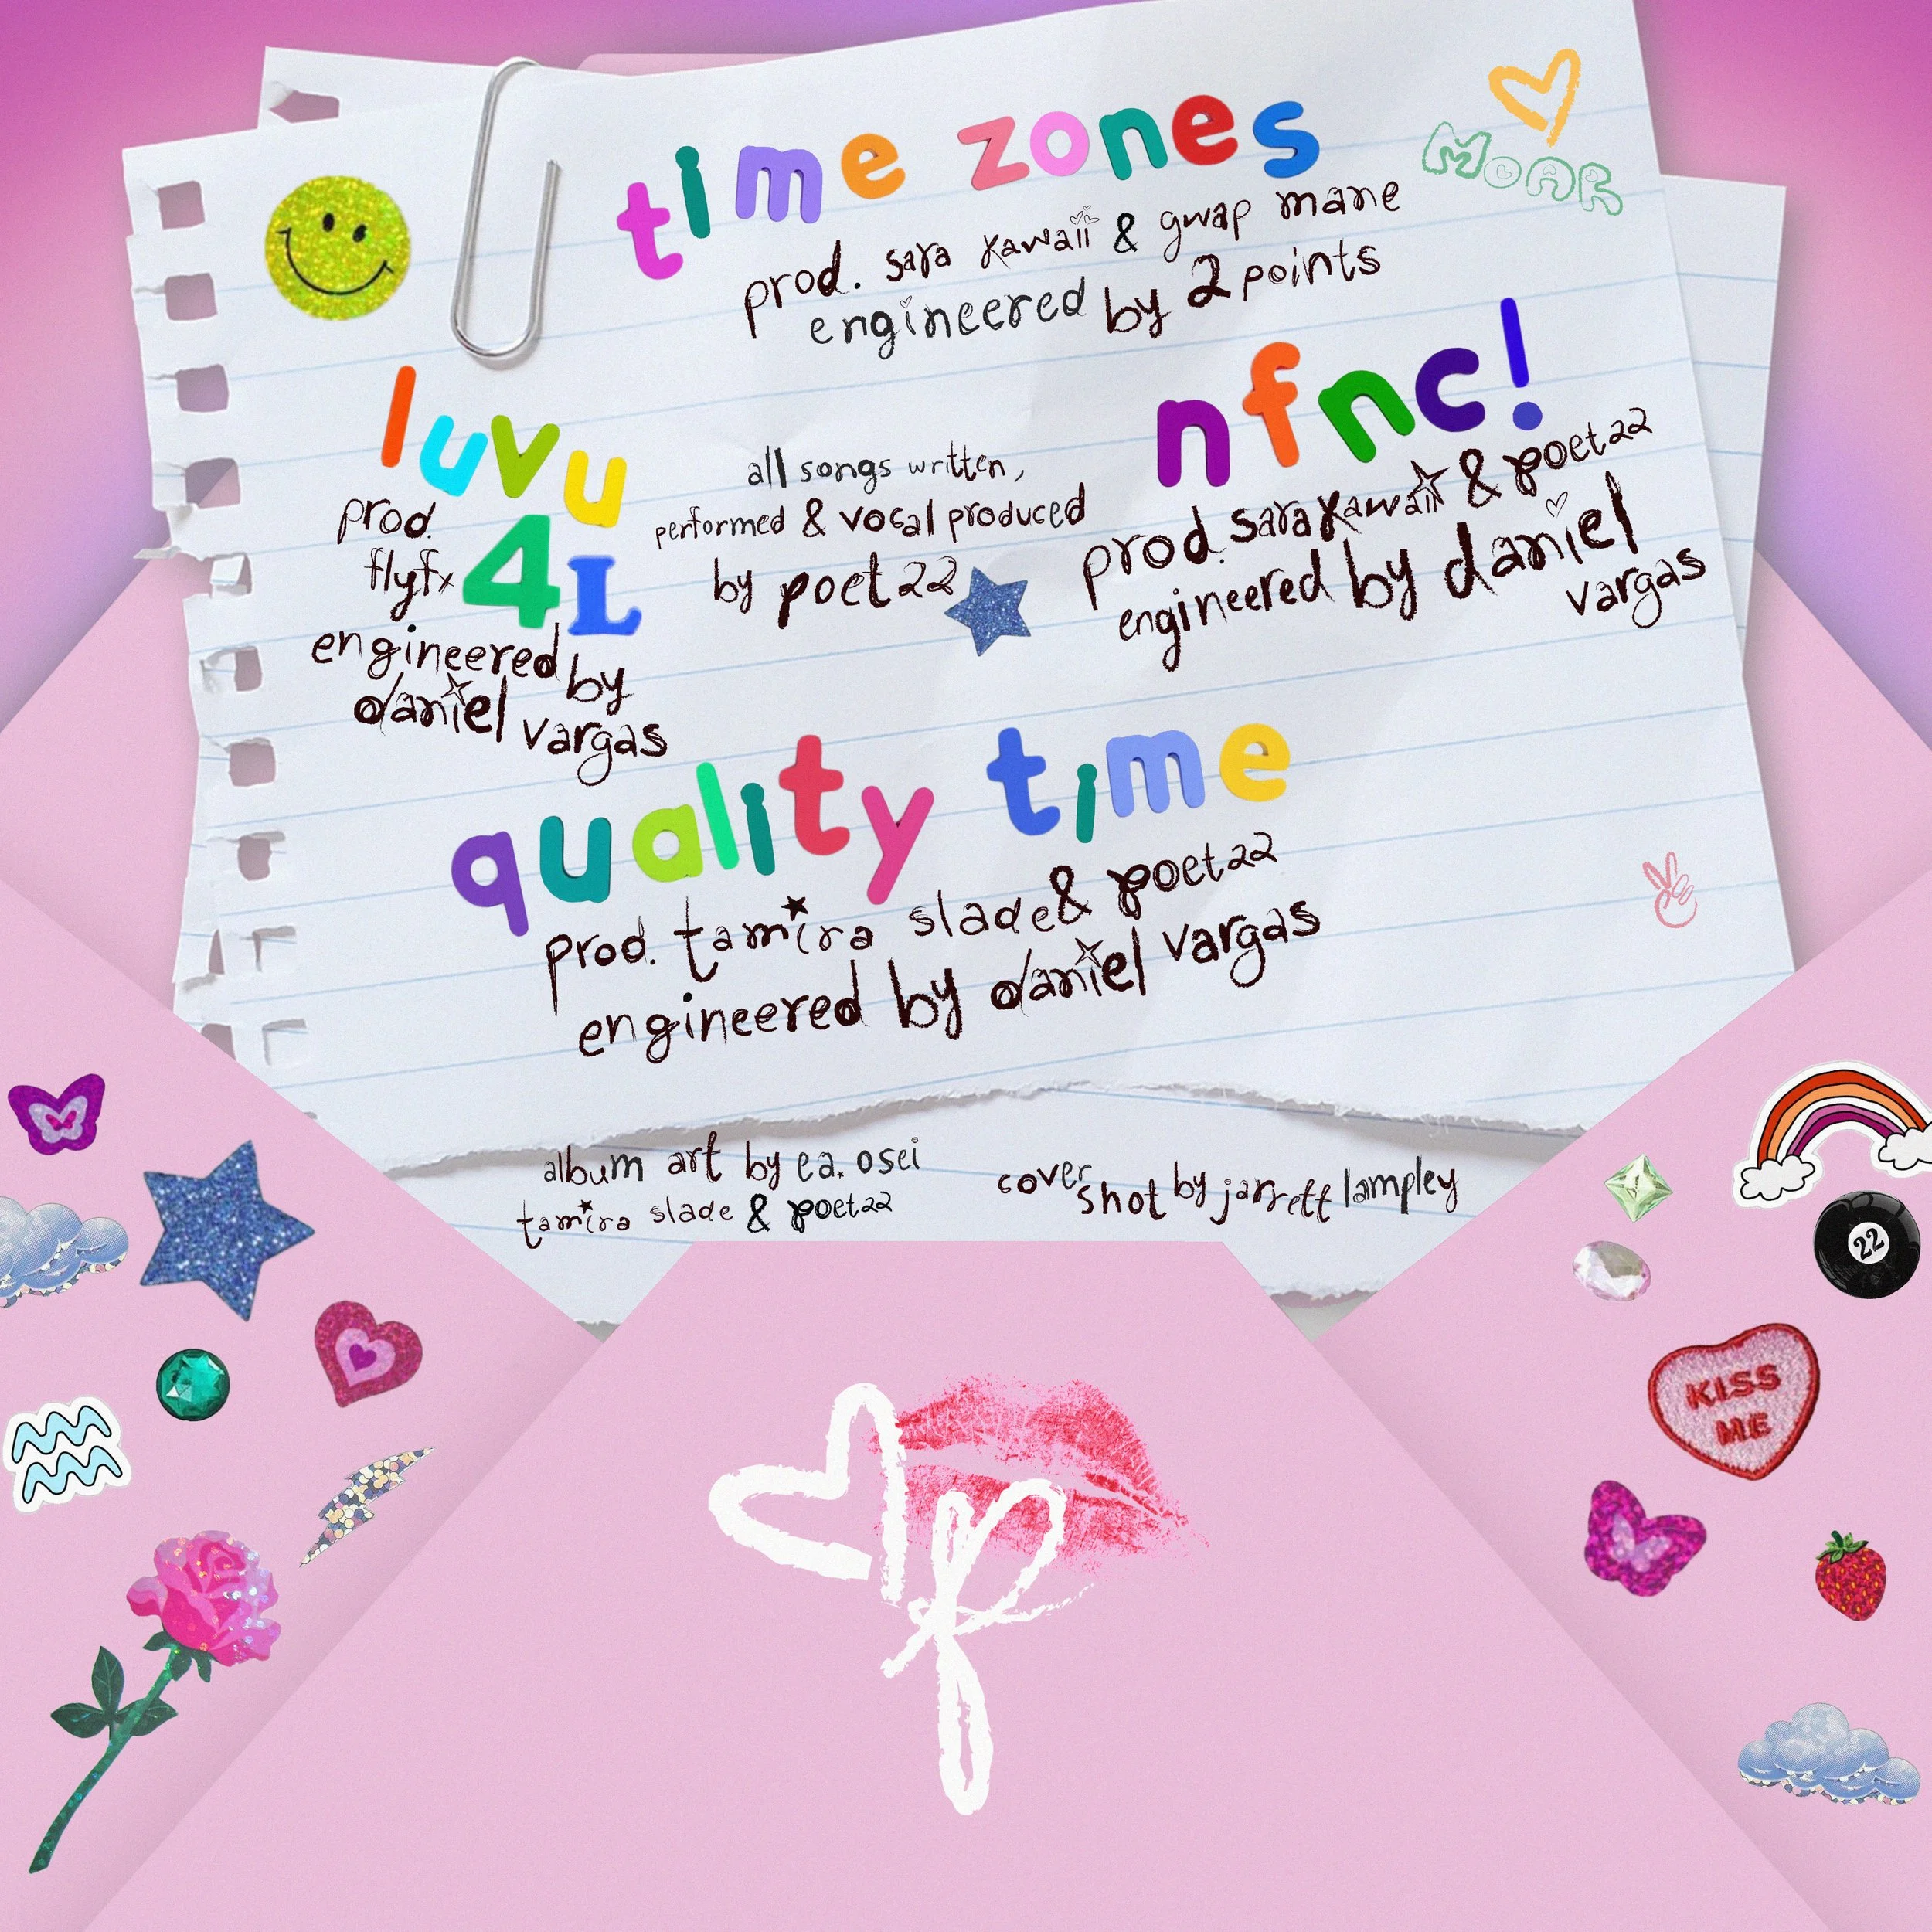 time zones
prod. sara kawaii & gwap mane
engineered by 2points
MOAR
luvu
4L
prod.
flyfx
engineered by
daniel vargas
all songs written,
performed & vocal produced
by poet22
nfnc!
prod. sara kawaii & poet22
engineered by daniel
vargas
quality time
prod. tamira slade & poet22
engineered by daniel vargas
album art by ea. osei
tamira slade & poet22
cover
shot by jarrett lampley
22
KISS
ME
p